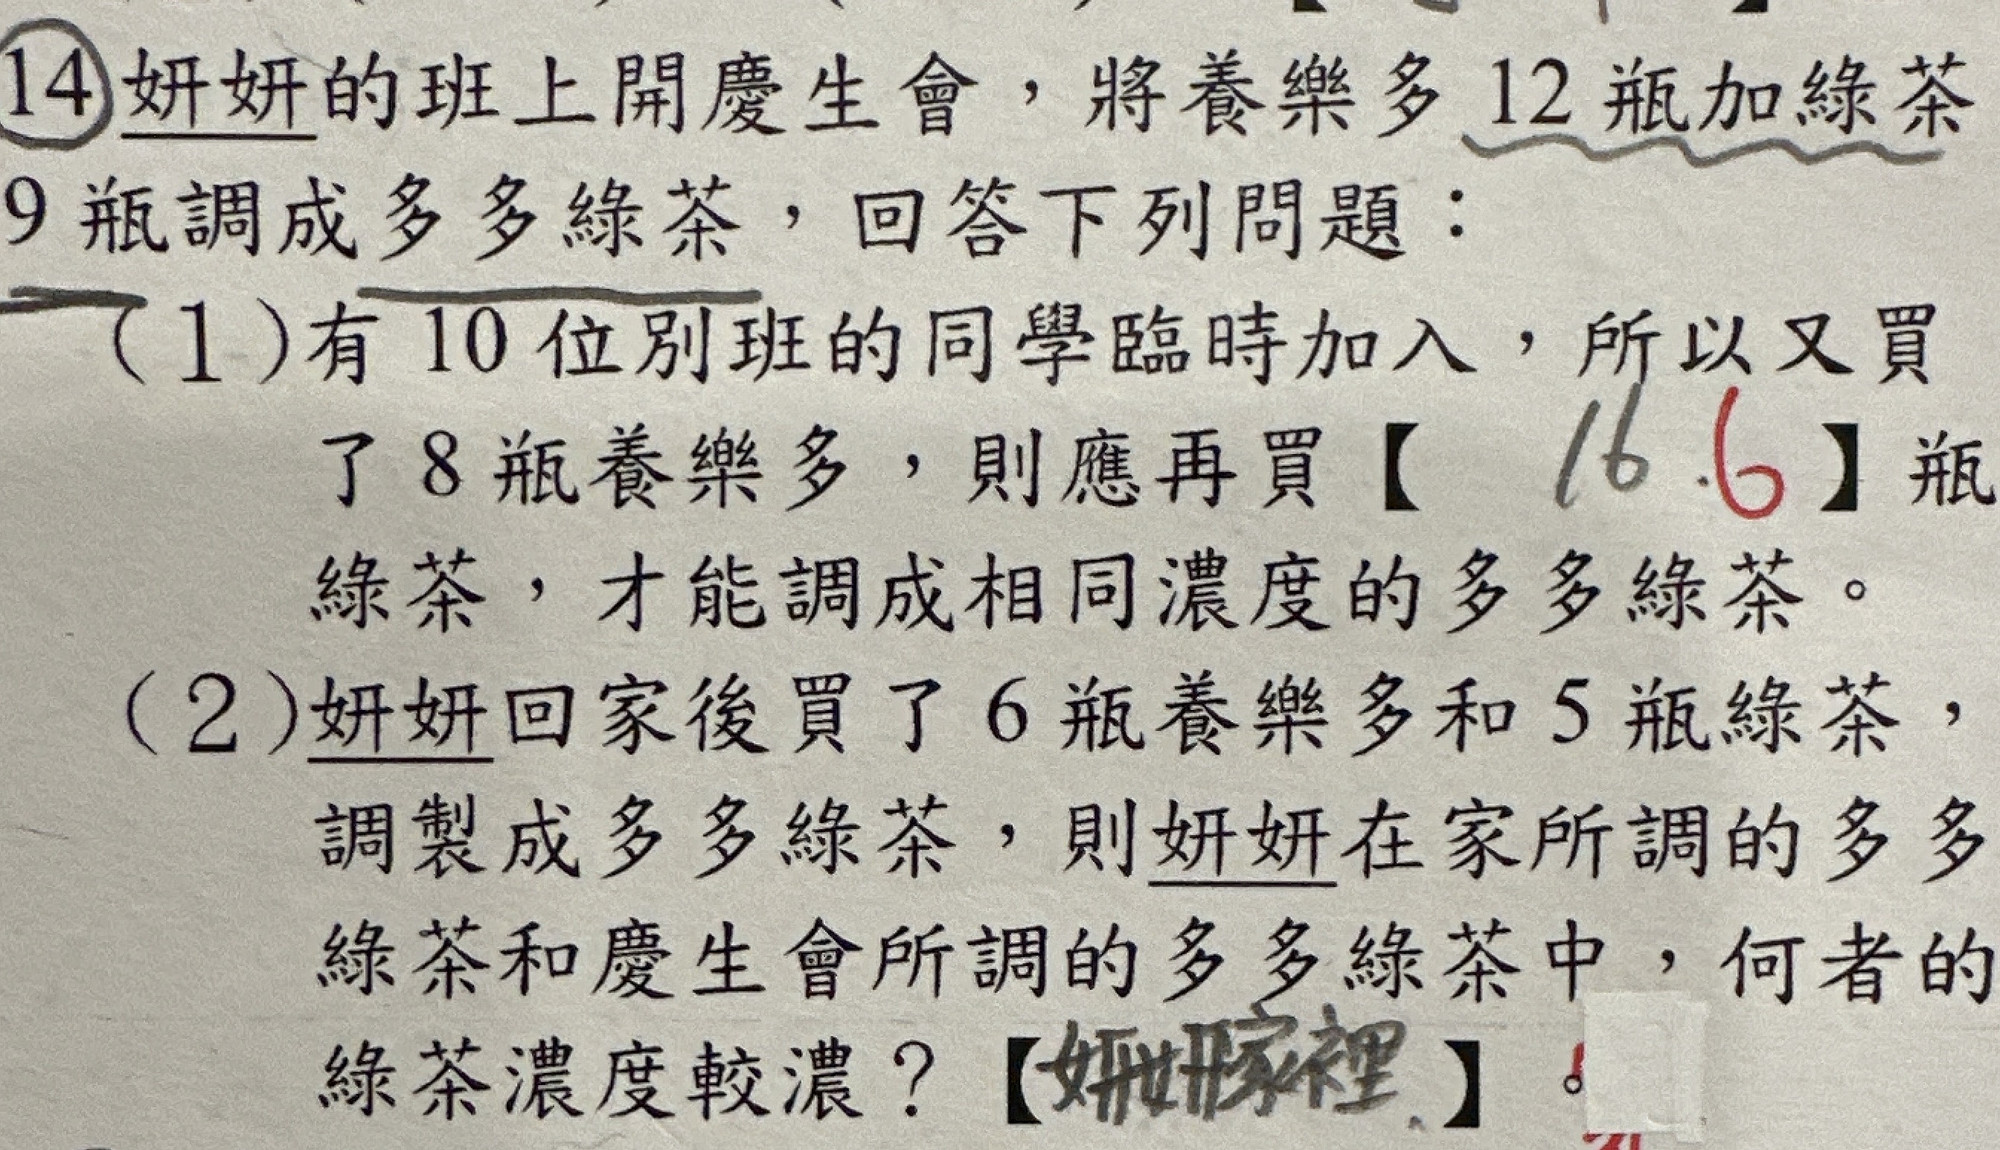 14 妍妍的班上開慶生會，將養樂多 12 瓶加綠茶
9 瓶調成多多綠茶，回答下列問題：
(1)有 10 位別班的同學臨時加入，所以又買
了 8 瓶養樂多，則應再買【 16 . 6 】瓶
綠茶，才能調成相同濃度的多多綠茶。
(2)妍妍回家後買了 6 瓶養樂多和 5 瓶綠茶，
調製成多多綠茶，則妍妍在家所調的多多
綠茶和慶生會所調的多多綠茶中，何者的
綠茶濃度較濃？【妍妍家裡】。